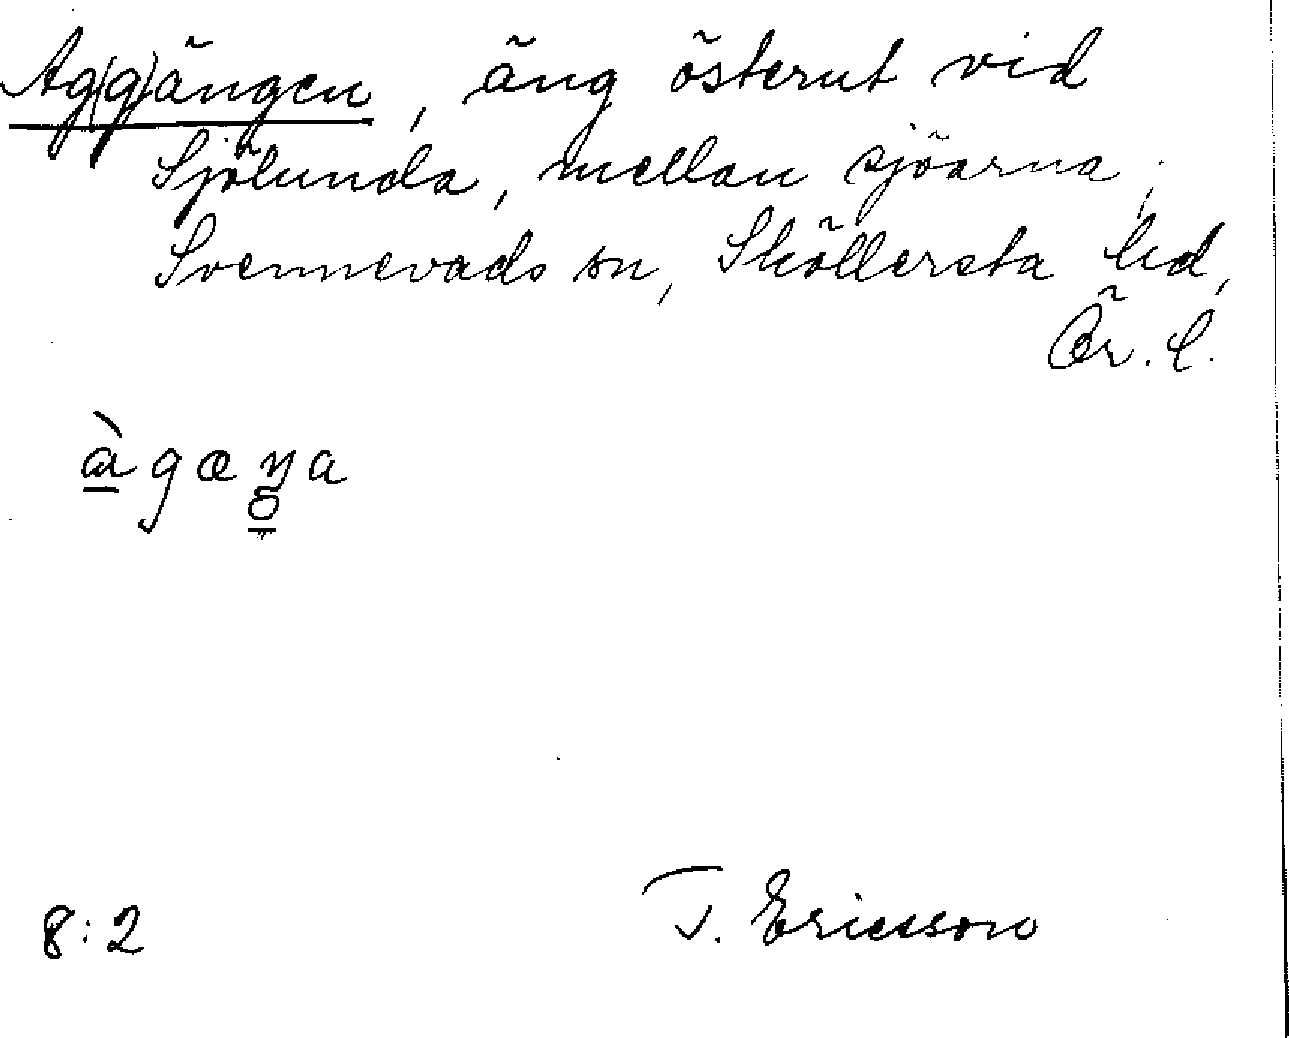 Ag(g)ängen, äng österut vid
Sjölunda, mellan sjöarna,
Svennevads sn, Sköllersta hd,
Ör. l.
àgæŋa
8:2
T. Ericsson